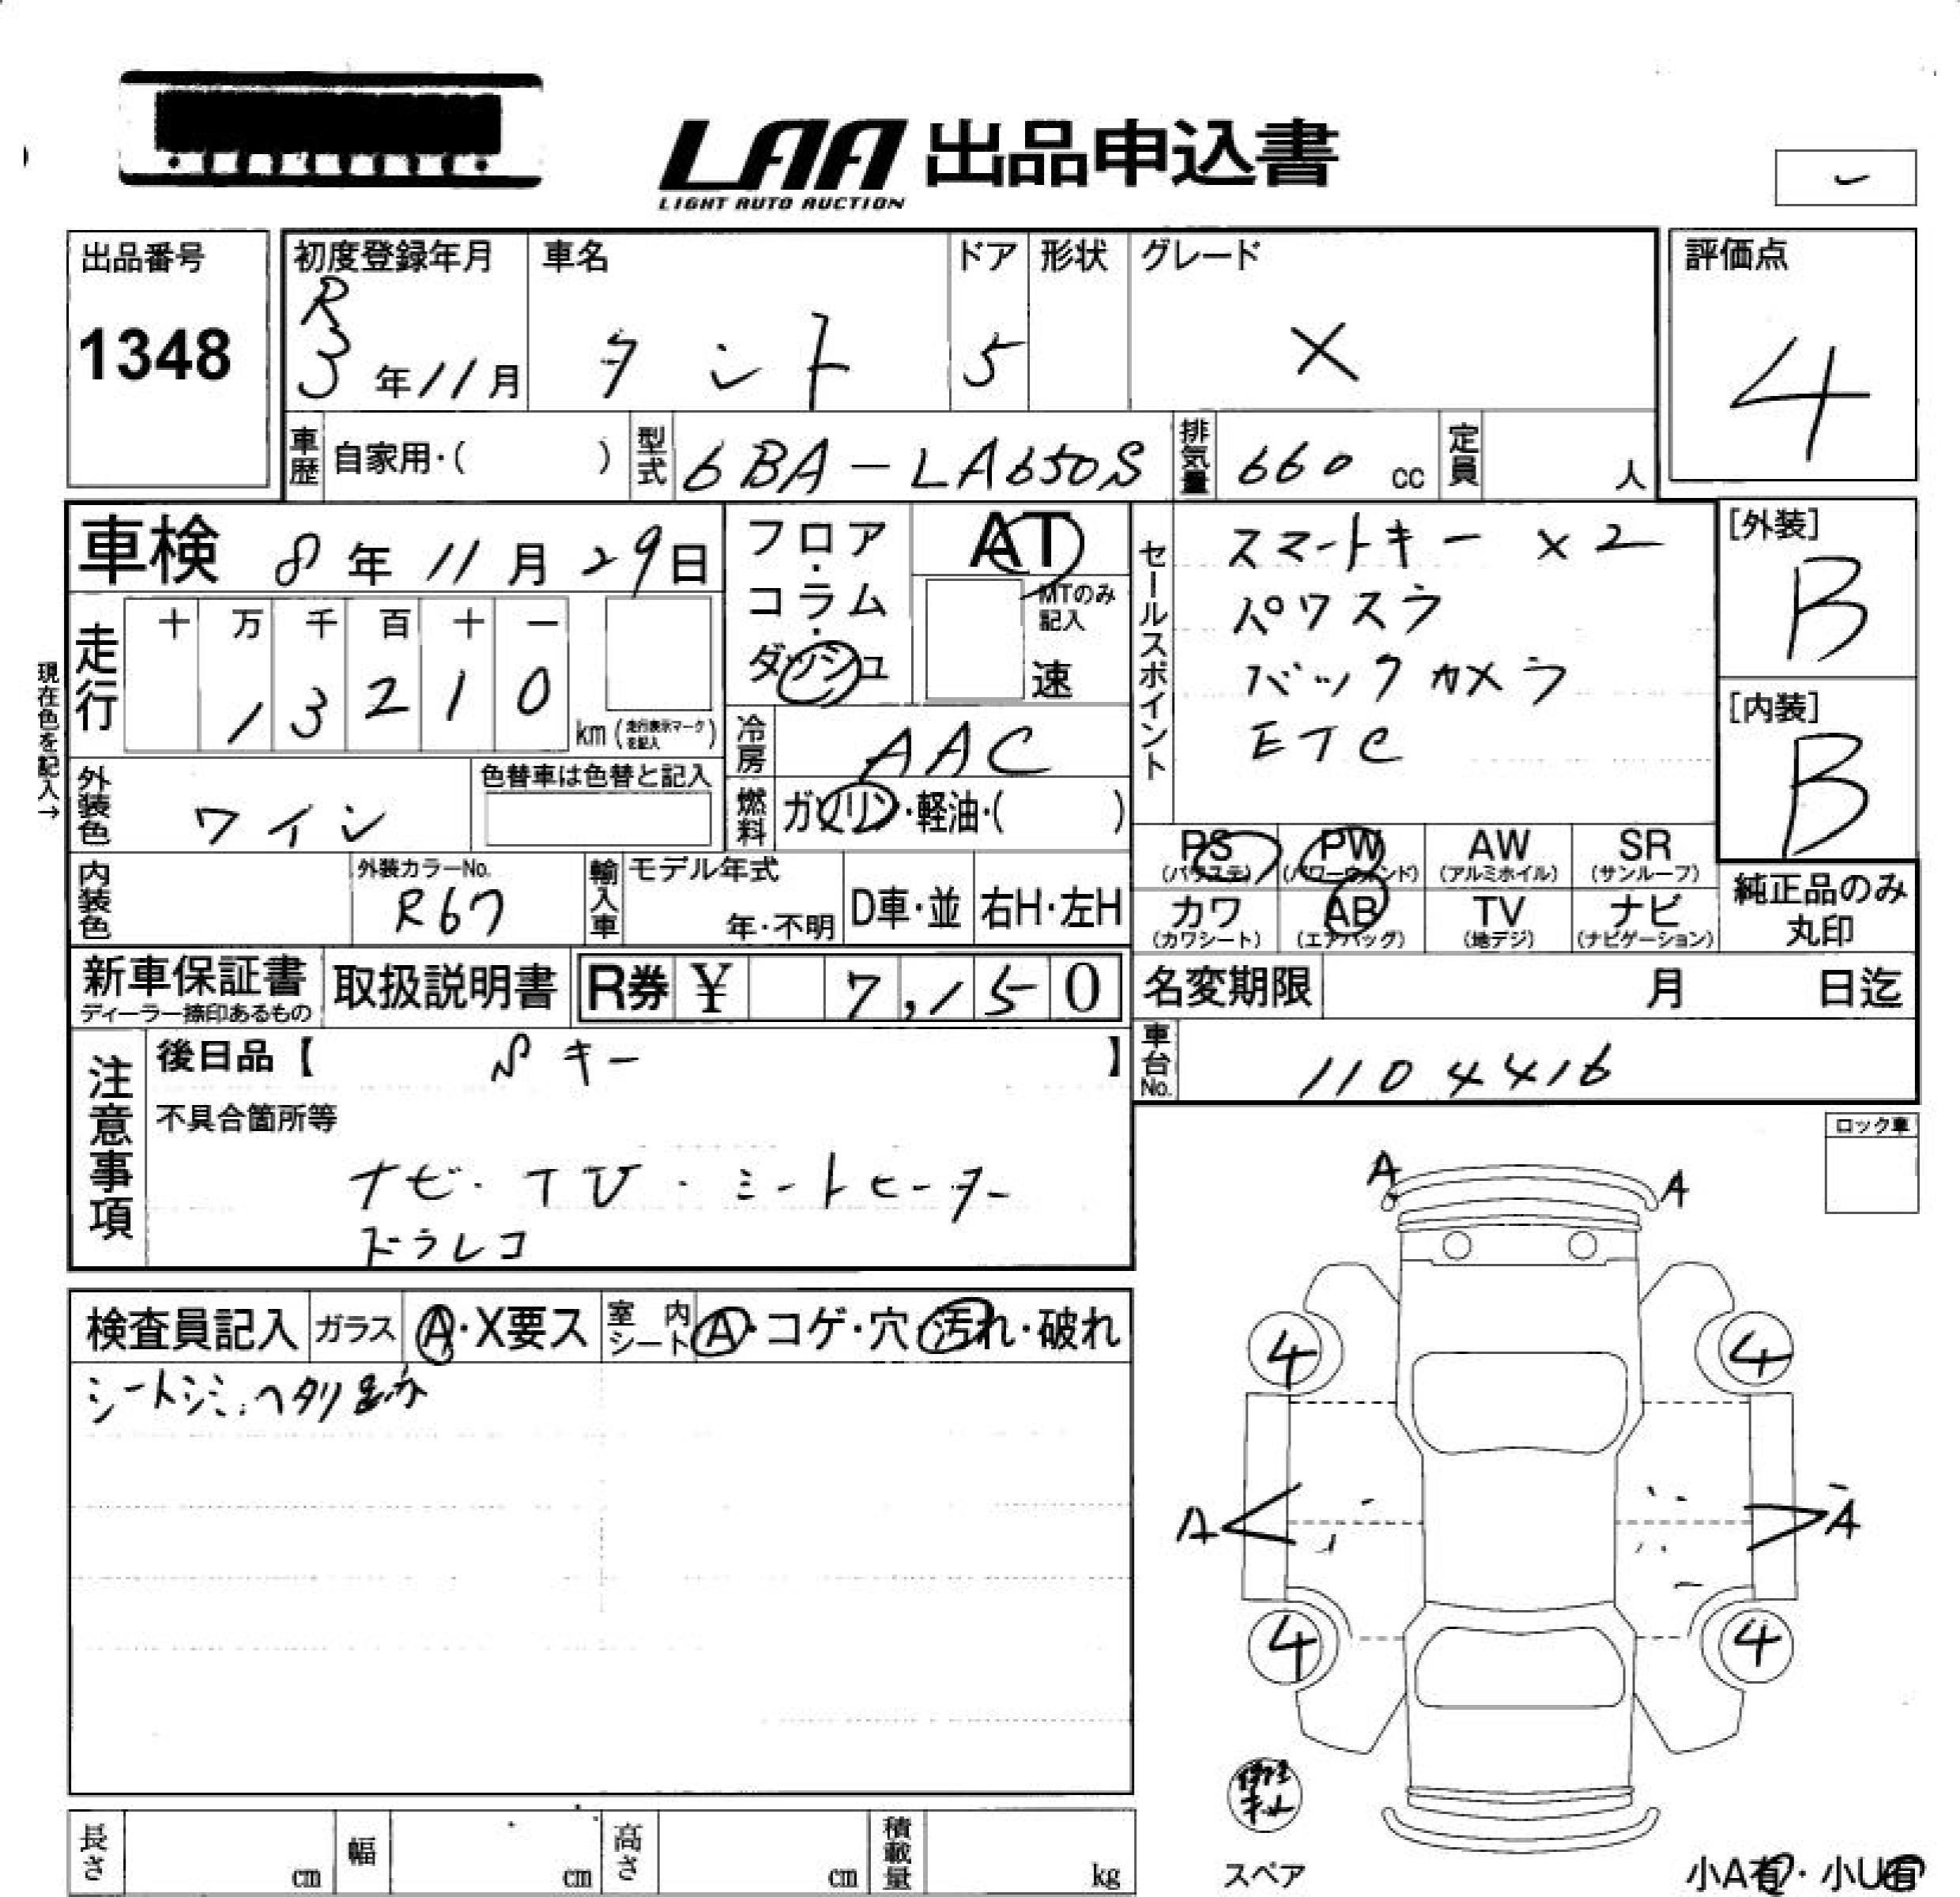 LAA 出品申込書
LIGHT AUTO AUCTION
出品番号
1348
初度登録年月
R
3年11月
車名
タント
ドア
5
形状
グレード
X
評価点
4
車歴 自家用・( )
型式 6BA-LA650S
排気量 660 cc
定員 人
車検 8年11月29日
走行
十 万 千 百 十 一
1 3 2 1 0
km (走行表示マークを記入)
現在色を記入→
フロア・コラム・ダッシュ
AT
MTのみ記入
速
セールスポイント
スマートキー ×2
パワスラ
バックカメラ
ETC
[外装]
B
[内装]
B
冷房 AAC
外装色 ワイン
色替車は色替と記入
燃料 ガソリン・軽油・( )
PS (パワステ)
PW (パワーウィンド)
AW (アルミホイル)
SR (サンルーフ)
カワ (カワシート)
AB (エアバッグ)
TV (地デジ)
ナビ (ナビゲーション)
純正品のみ
丸印
内装色
外装カラーNo.
R67
輸入車
モデル年式
年・不明
D車・並
右H・左H
新車保証書
ディーラー捺印あるもの
取扱説明書
R券 ¥ 7,150
名変期限 月 日迄
車台No. 1104416
注意事項
後日品【 Sキー 】
不具合箇所等
ナビ・TV・シートヒーター
ドラレコ
ロック車
検査員記入
ガラス A・X要ス
室内シート A・コゲ・穴・汚れ・破れ
シートシミ、ヘタリ
A A
4 4
A A
4 4
スペア
小A有・小U有
長さ cm
幅 cm
高さ cm
積載量 kg